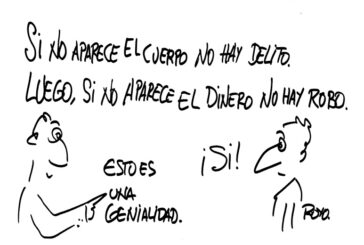 SI NO APARECE EL CUERPO NO HAY DELITO.
LUEGO, SI NO APARECE EL DINERO NO HAY ROBO.
ESTO ES
UNA
GENIALIDAD.
¡SI!
ROYO.